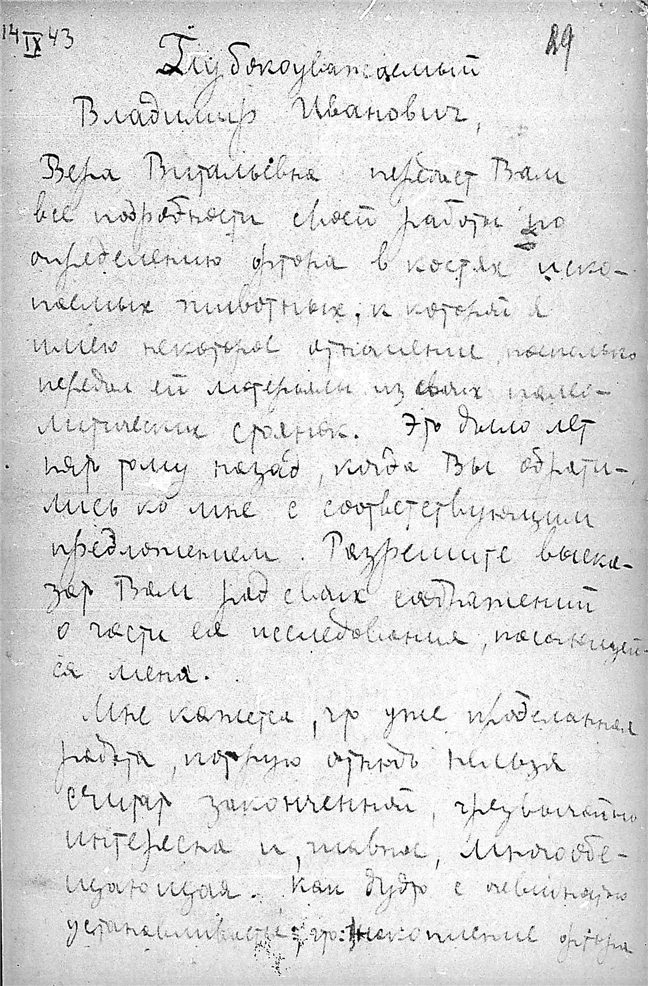 14 IX 43
29
Глубокоуважаемый
Владимир Иванович,
Вера Витальевна передаст Вам
все подробности своей работы по
определению фтора в костях иско-
паемых животных, к которой я
имею некоторое отношение, поскольку
передал ей материалы из своих палео-
литических стоянок. Это было лет
пять тому назад, когда Вы обрати-
лись ко мне с соответствующим
предложением. Разрешите выска-
зать Вам ряд своих соображений
о части ея исследования, касающей-
ся меня.
Мне кажется, что уже проделанная
работа, которую отнюдь нельзя
считать законченной, чрезвычайно
интересна и, главное, многообе-
щающая. Как будто с очевидностью
устанавливается, что: накопление фтора